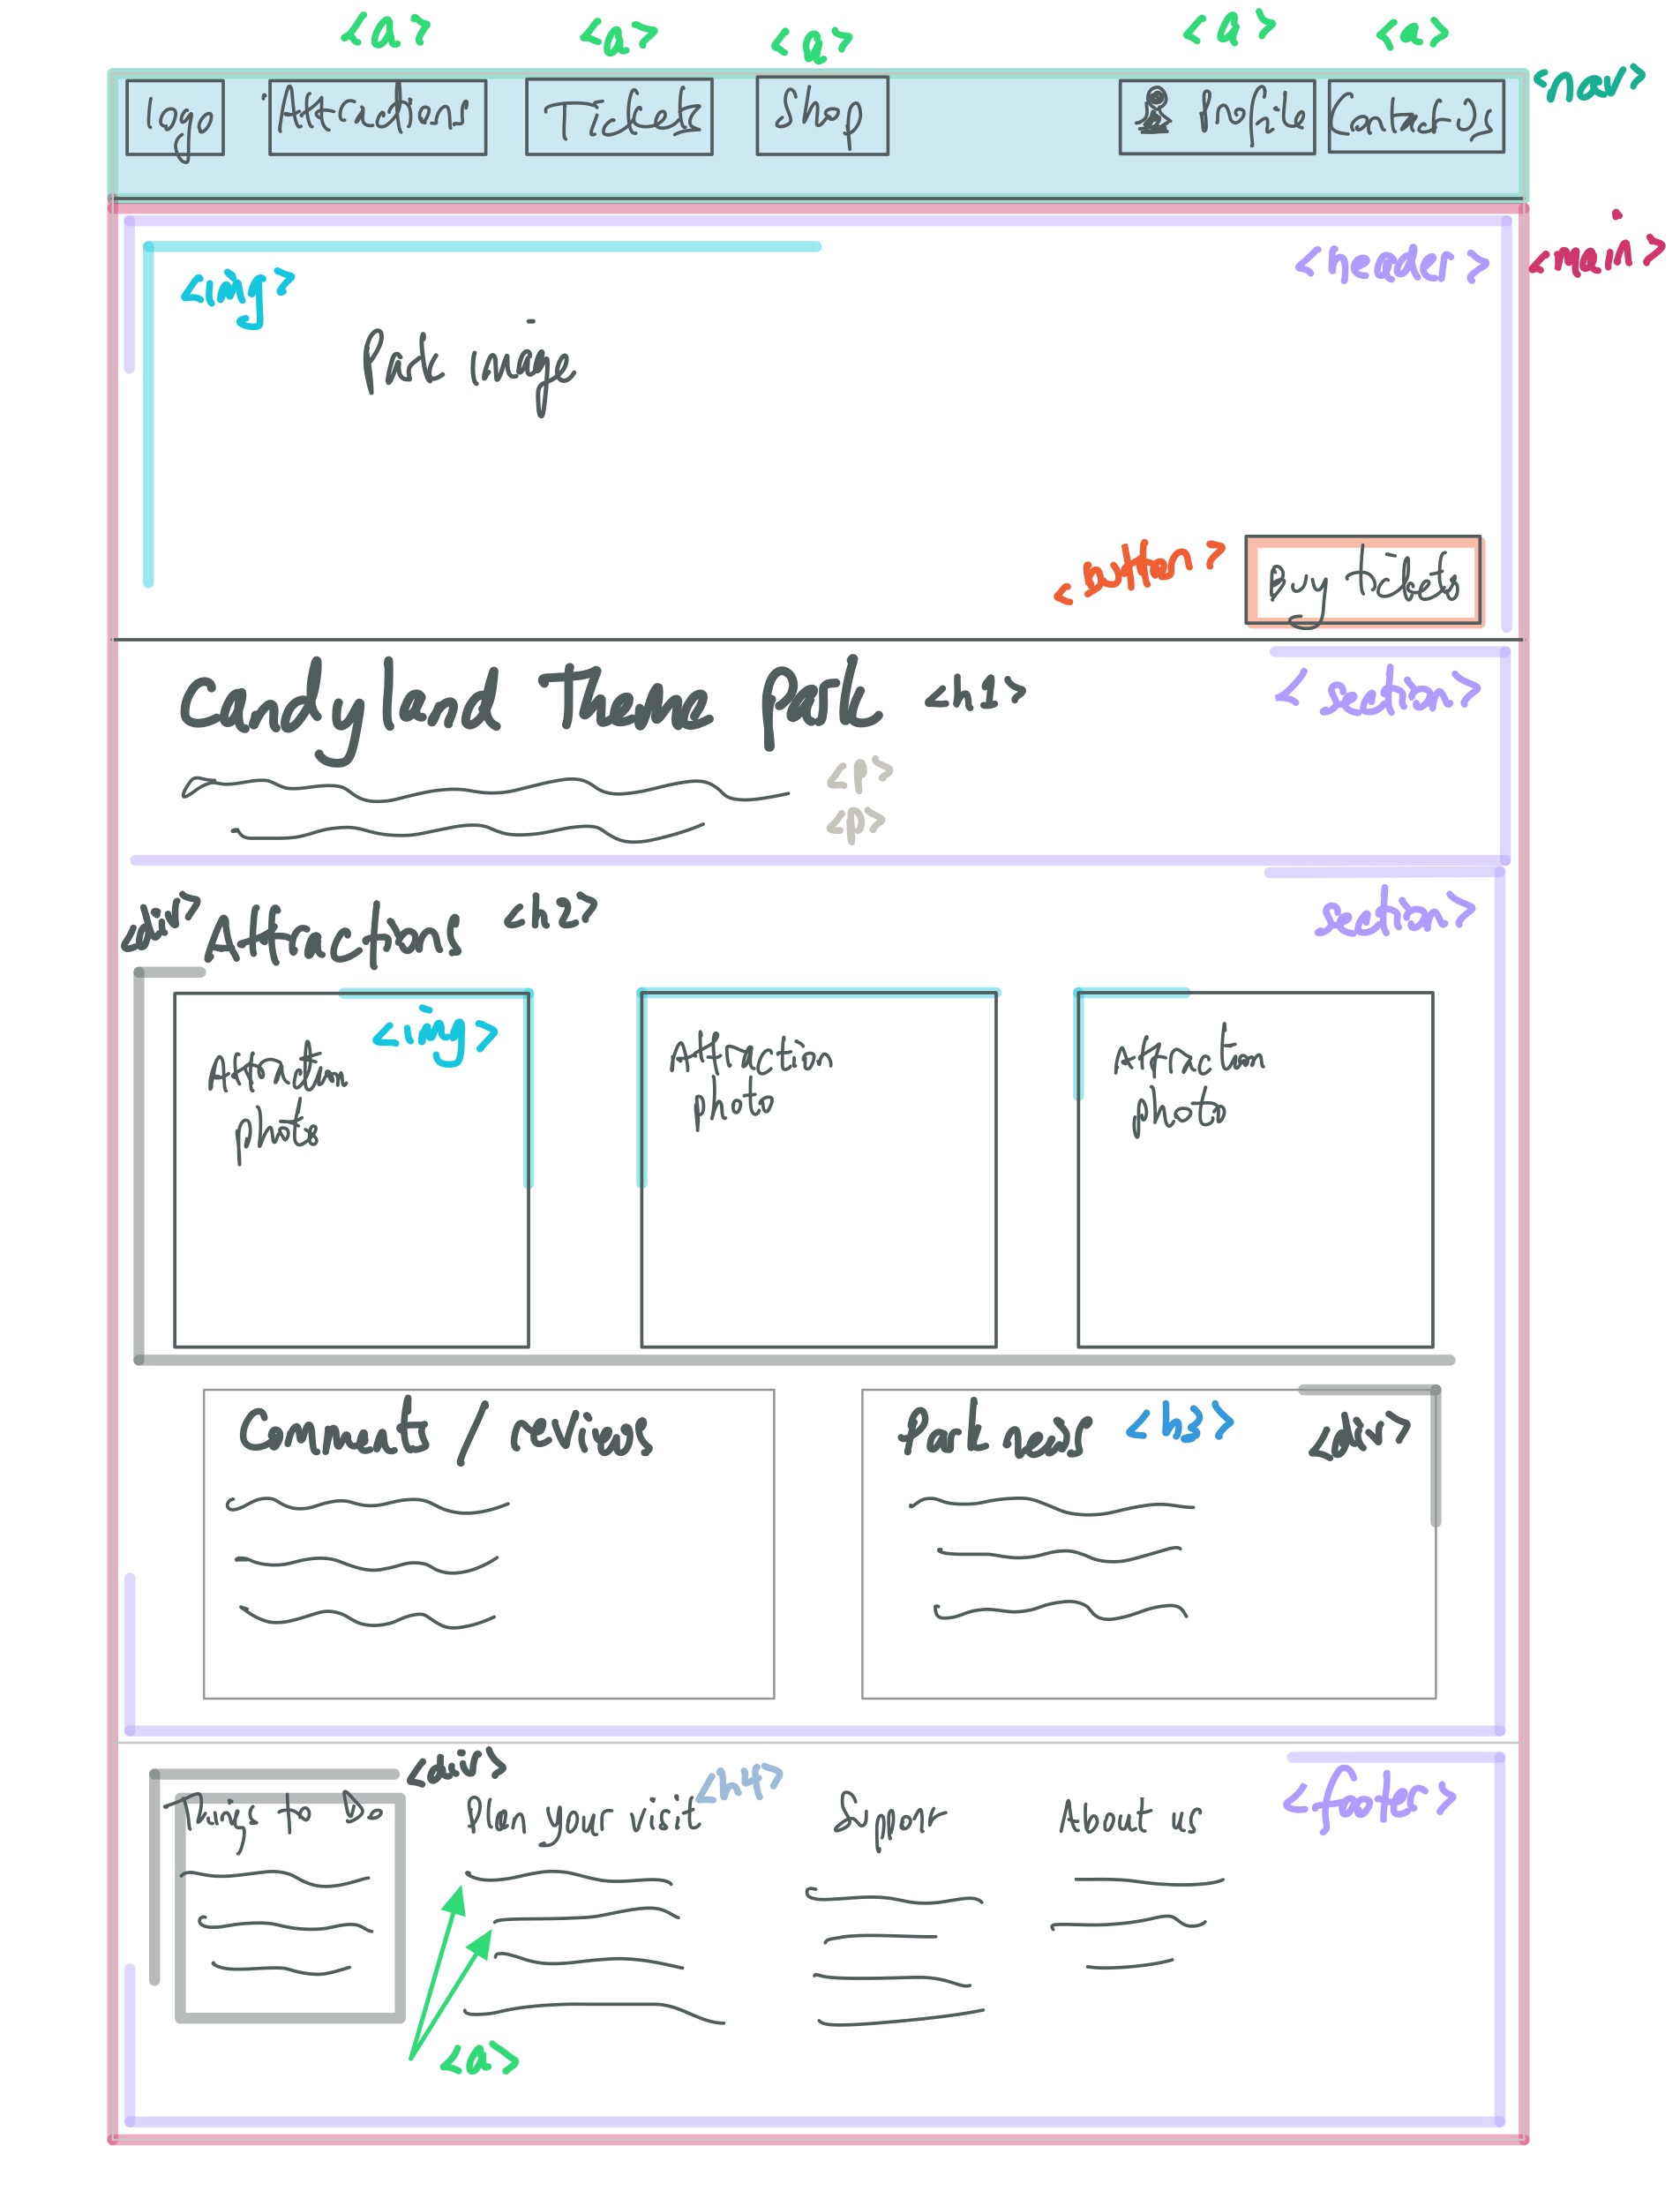 <a> <a> <a> <a> <a>
logo Attractions Tickets Shop Profile Contact Us <nav>
<img> <header> <main>
Park image
<button> Buy tickets
Candyland Theme Park <h1> <section>
<p>
<p>
<div> Attractions <h2> section>
<img>
Attraction photo
Attraction photo
Attraction photo
Comments / reviews
Park news <h3> <div>
<div> <h4> <footer>
Things to Do Plan your visit Support About us
<a>